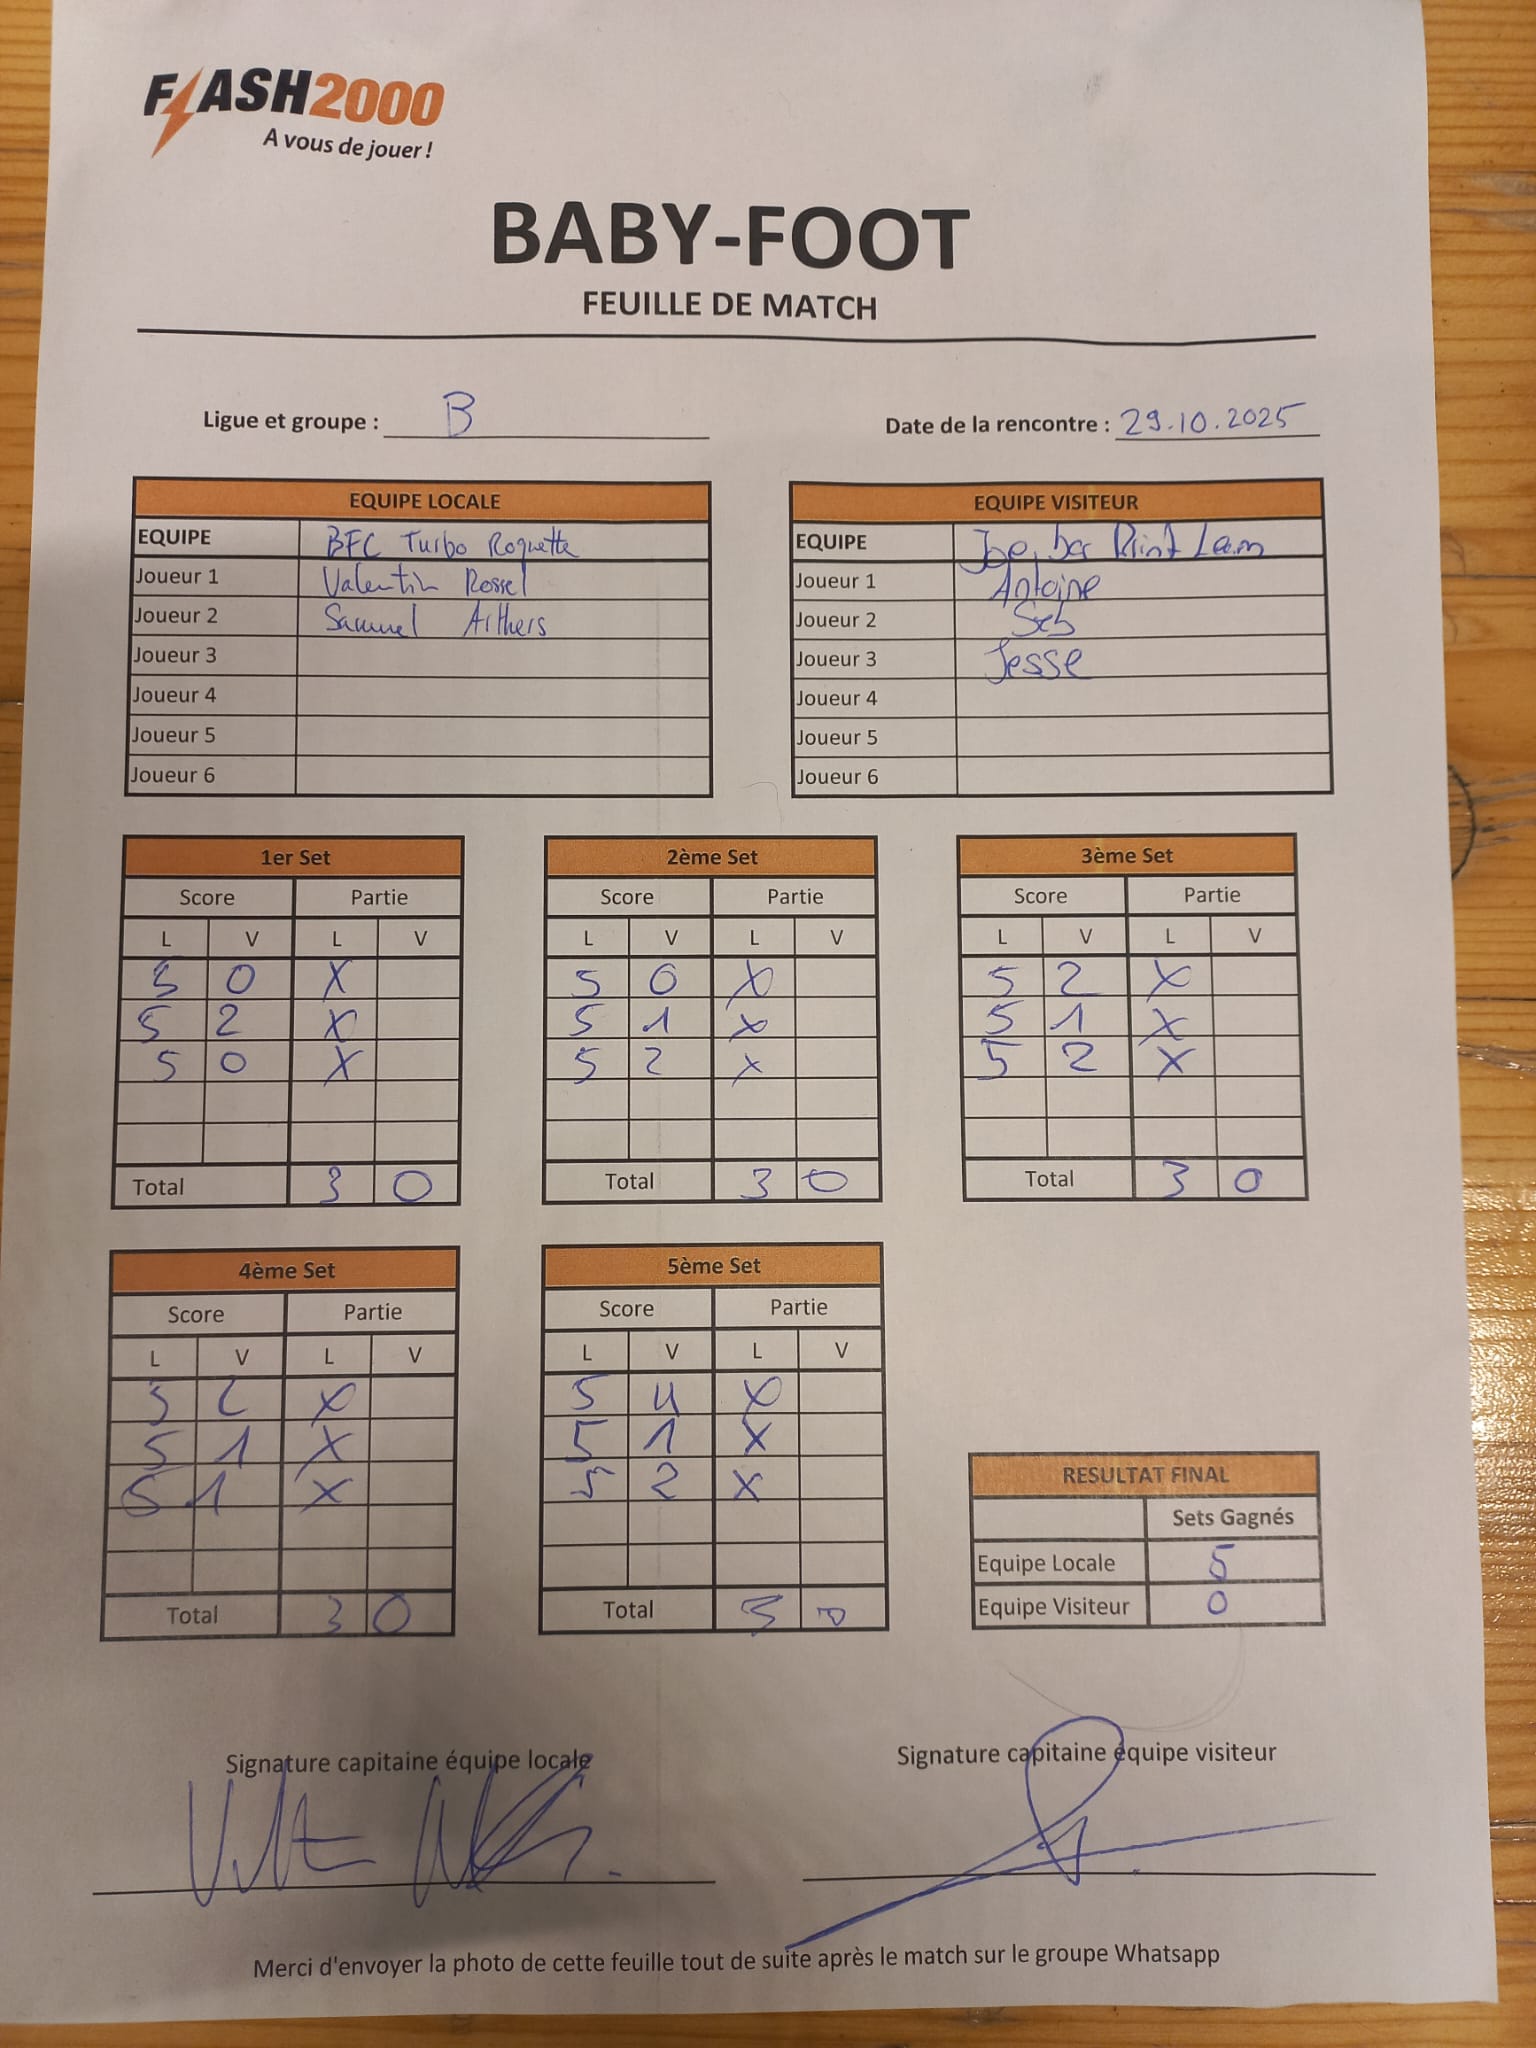 FLASH2000
A vous de jouer !
BABY-FOOT
FEUILLE DE MATCH
Ligue et groupe : B
Date de la rencontre : 29.10.2025
EQUIPE LOCALE
EQUIPE BFC Turbo Roquette
Joueur 1 Valentin Rossel
Joueur 2 Samuel
Joueur 3
Joueur 4
Joueur 5
Joueur 6
EQUIPE VISITEUR
EQUIPE Joe bar
Joueur 1 Antoine
Joueur 2 Seb
Joueur 3 Jesse
Joueur 4
Joueur 5
Joueur 6
1er Set
Score Partie
L V L V
5 0 X
5 2 X
5 0 X
Total 3 0
2ème Set
Score Partie
L V L V
5 0 X
5 1 X
5 2 X
Total 3 0
3ème Set
Score Partie
L V L V
5 2 X
5 1 X
5 2 X
Total 3 0
4ème Set
Score Partie
L V L V
5 2 X
5 1 X
5 1 X
Total 3 0
5ème Set
Score Partie
L V L V
5 4 X
5 1 X
5 2 X
Total 3 0
RESULTAT FINAL
Sets Gagnés
Equipe Locale 5
Equipe Visiteur 0
Signature capitaine équipe locale
Signature capitaine équipe visiteur
Merci d'envoyer la photo de cette feuille tout de suite après le match sur le groupe Whatsapp